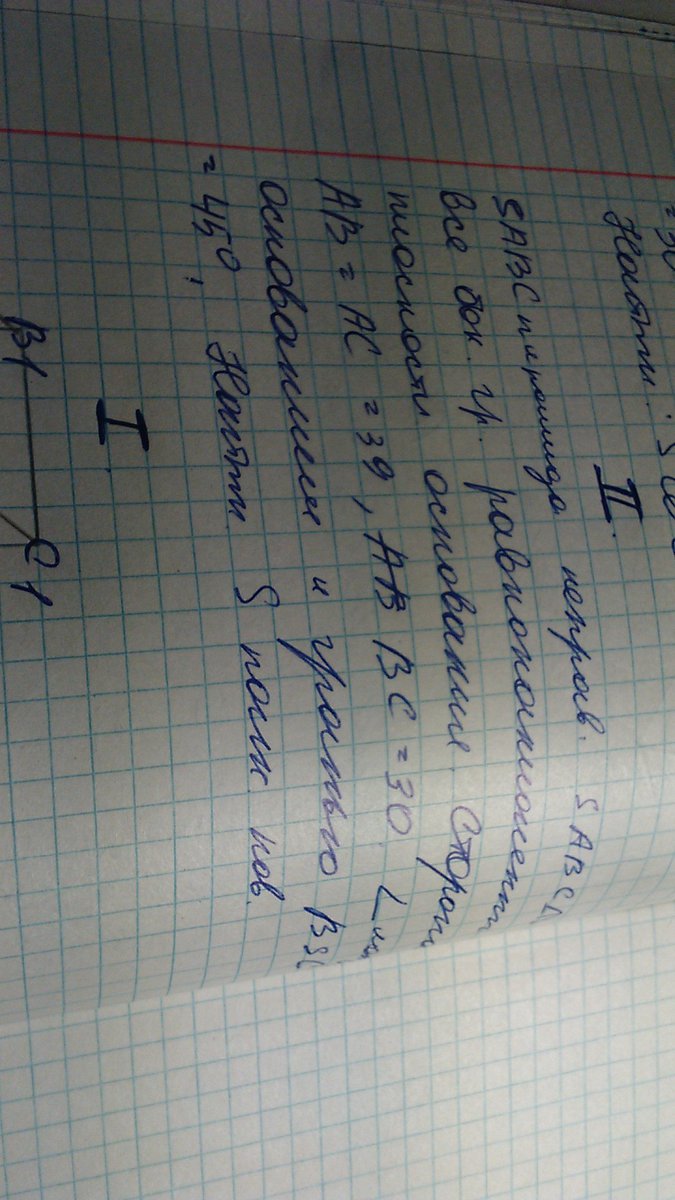 = 30
Найти: S
II.
SABC пирамида неправ. SABC
все бок. гр. равнонаклонены
плоскости основания. Сторон
AB = AC = 39, BC = 30.
основанием и гранью BSC
= 45°, Найти S полн. пов.
I.
B1 C1